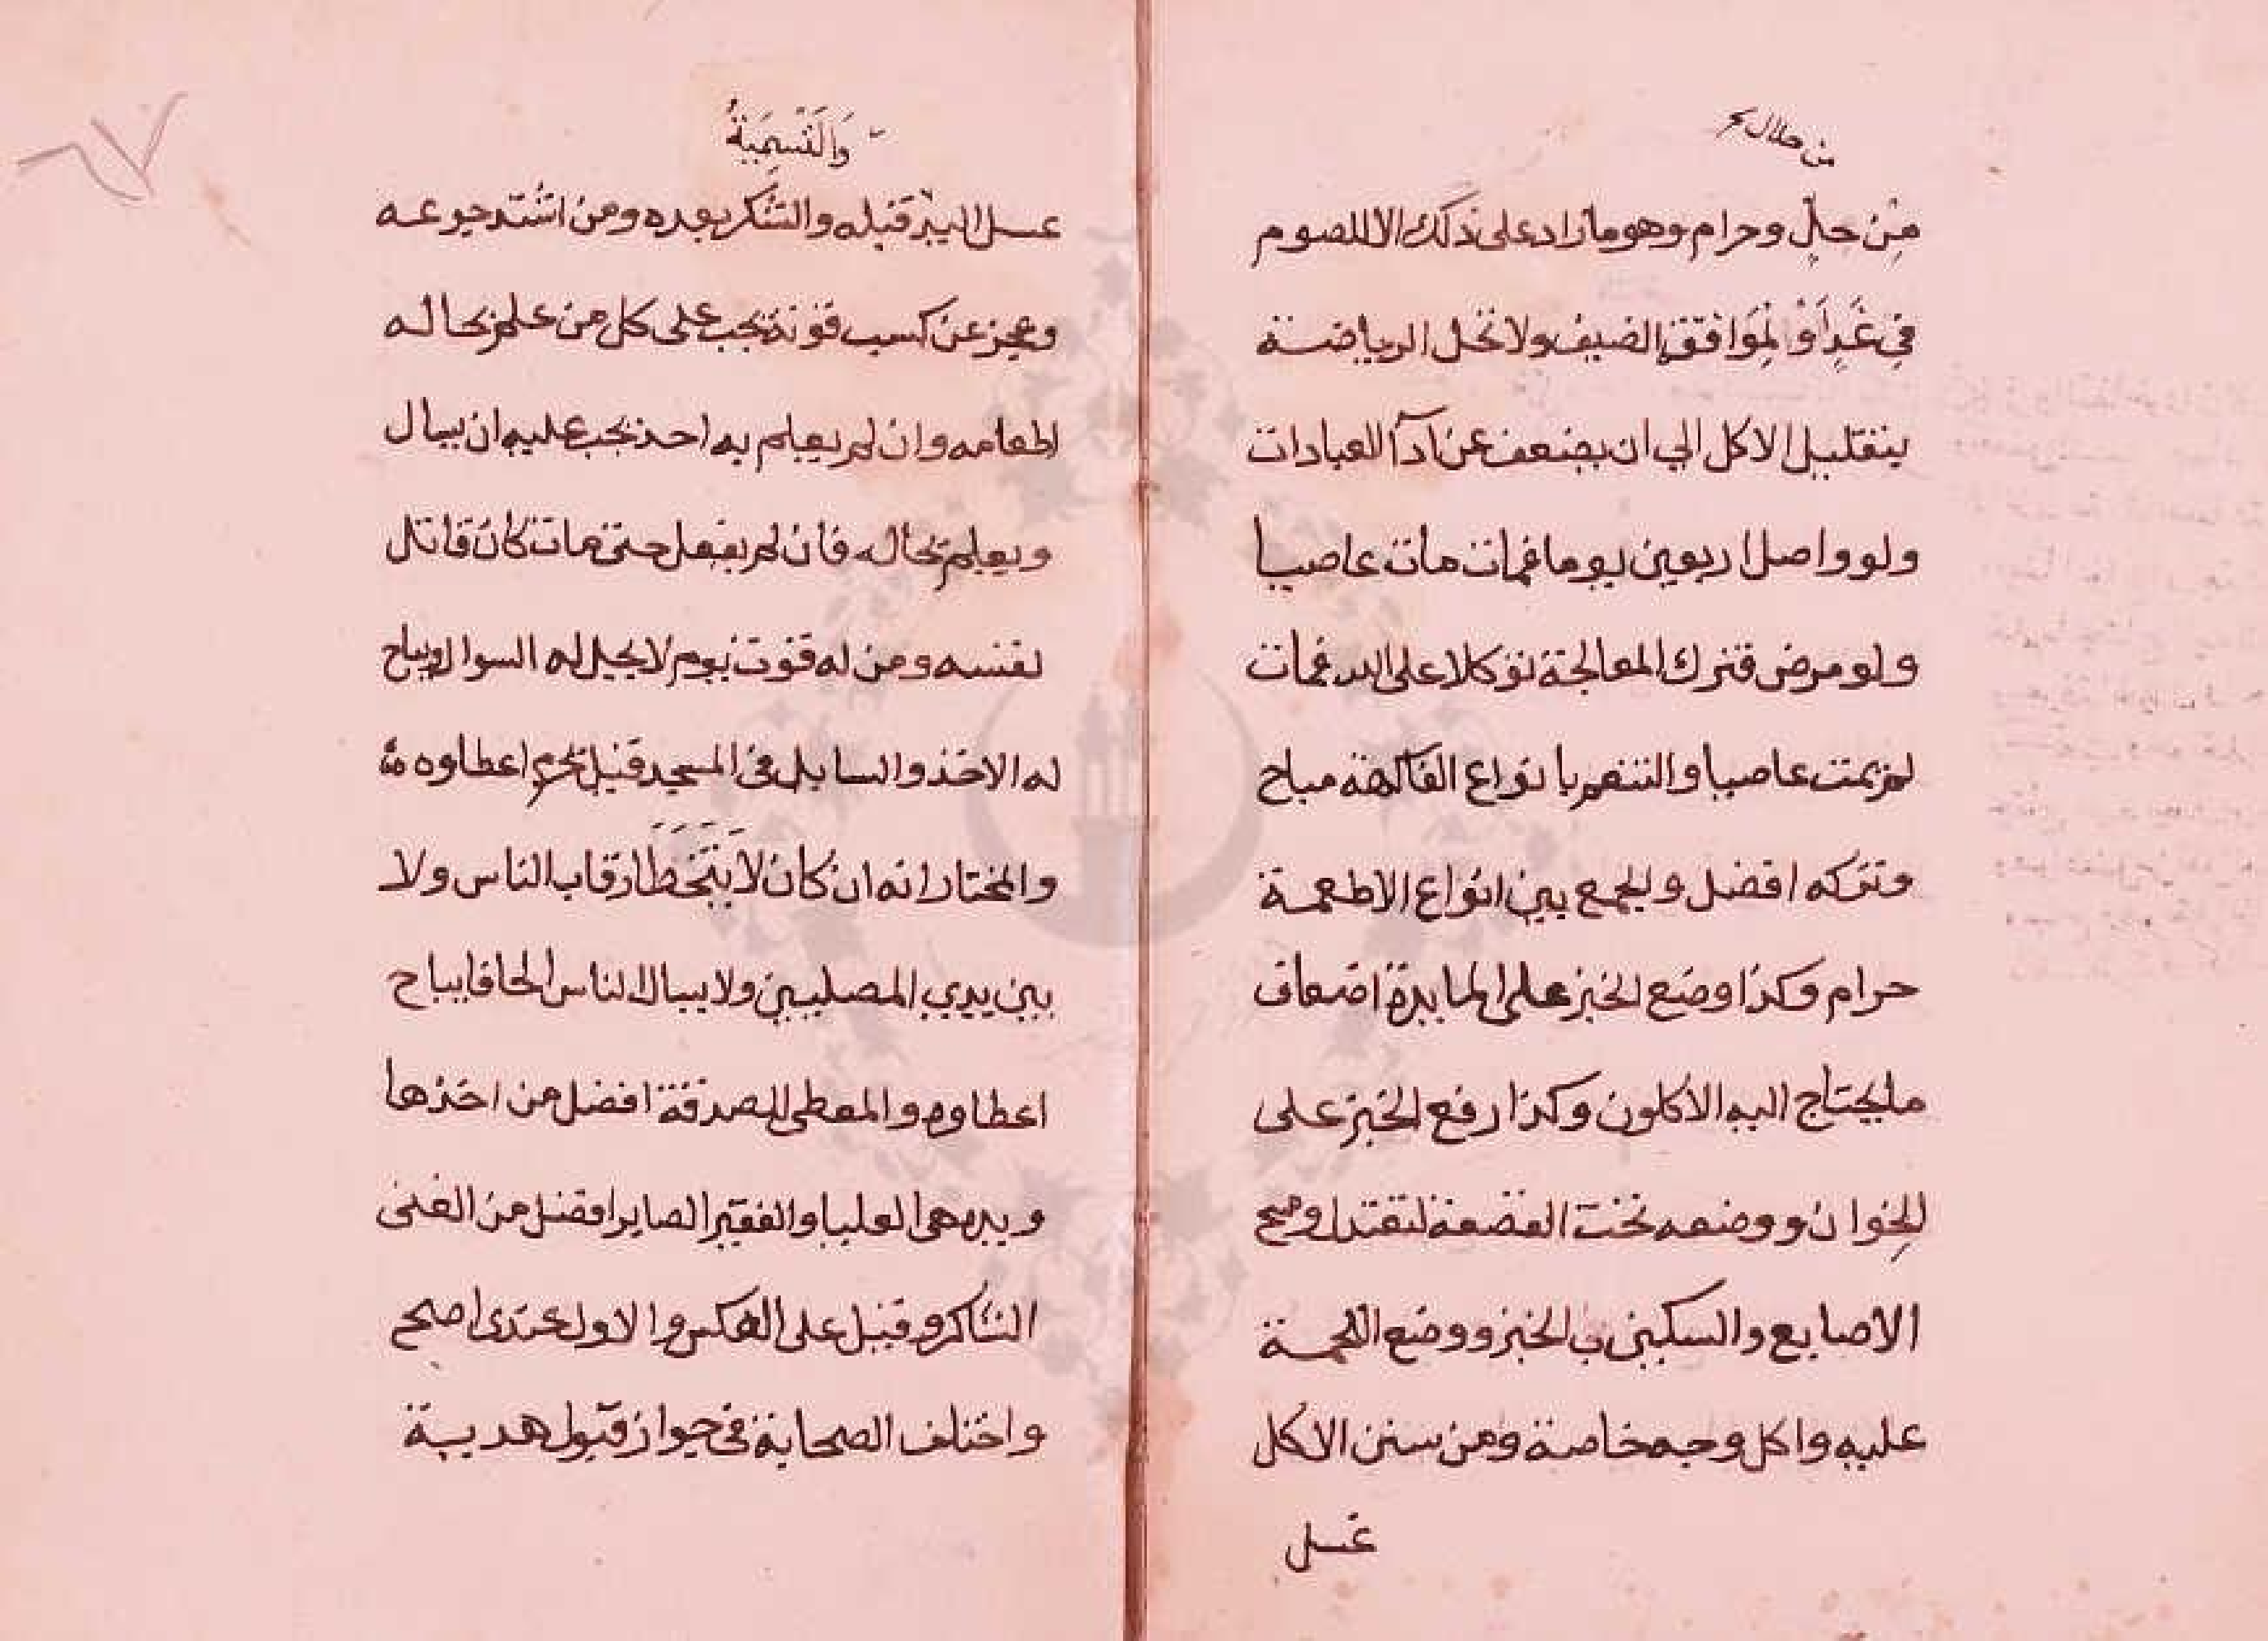 من حلال
مِن حلٍ وحرام وهو ما زاد على ذلك الا للصوم
في غَدٍ أَوْ لِمُوَافقة الضيف ولا تحل الرياضة
بتقليل الاكل الي ان يضعف عن ادآ العبادات
ولو واصل اربعين يوما فمات مات عاصيا
ولو مرض فترك المعالجة توكلا على الله فمات
لم يمت عاصيا والتنعم بانواع الفاكهة مباح
وتركه افضل والجمع بين انواع الاطعمة
حرام وكذا وضع الخبز على المايدة اضعاف
ما يحتاج اليه الاكلون وكذا رفع الخبز على
الخِوان ووضعه تحت القصعة لتعتدل ومسح
الاصابع والسكين في الخبز ووضع
عليه واكل وجهه خاصة ومن سنن الاكل
غسل
وَالتَسْمِيَةُ
غسل اليد قبله والشكر بعده ومن اشتد جوعه
وعجز عن كسب قوته يجب على كل من علم بحاله
اطعامه وان لم يعلم به احد يجب عليه ان يسال
ويعلم بحاله فان لم يفعل حتى مات كان قاتل
نفسه ومن له قوت يوم لا يحل له السوال ويباح
له الاخذ والسايل في المسجد قيل يحرم اعطاوه
والمختار انه ان كان لا يَتَخَطَا رقاب الناس ولا
بين يدي المصليين ولا يسال الناس الحافا يباح
اعطاوه والمعطى للصدقة افضل من اخذها
ويده هي العليا والفقير الصابر افضل من الغنى
الشاكر وقيل على العكس والاول عندى اصح
واختلف الصحابة في جواز قبول هدية